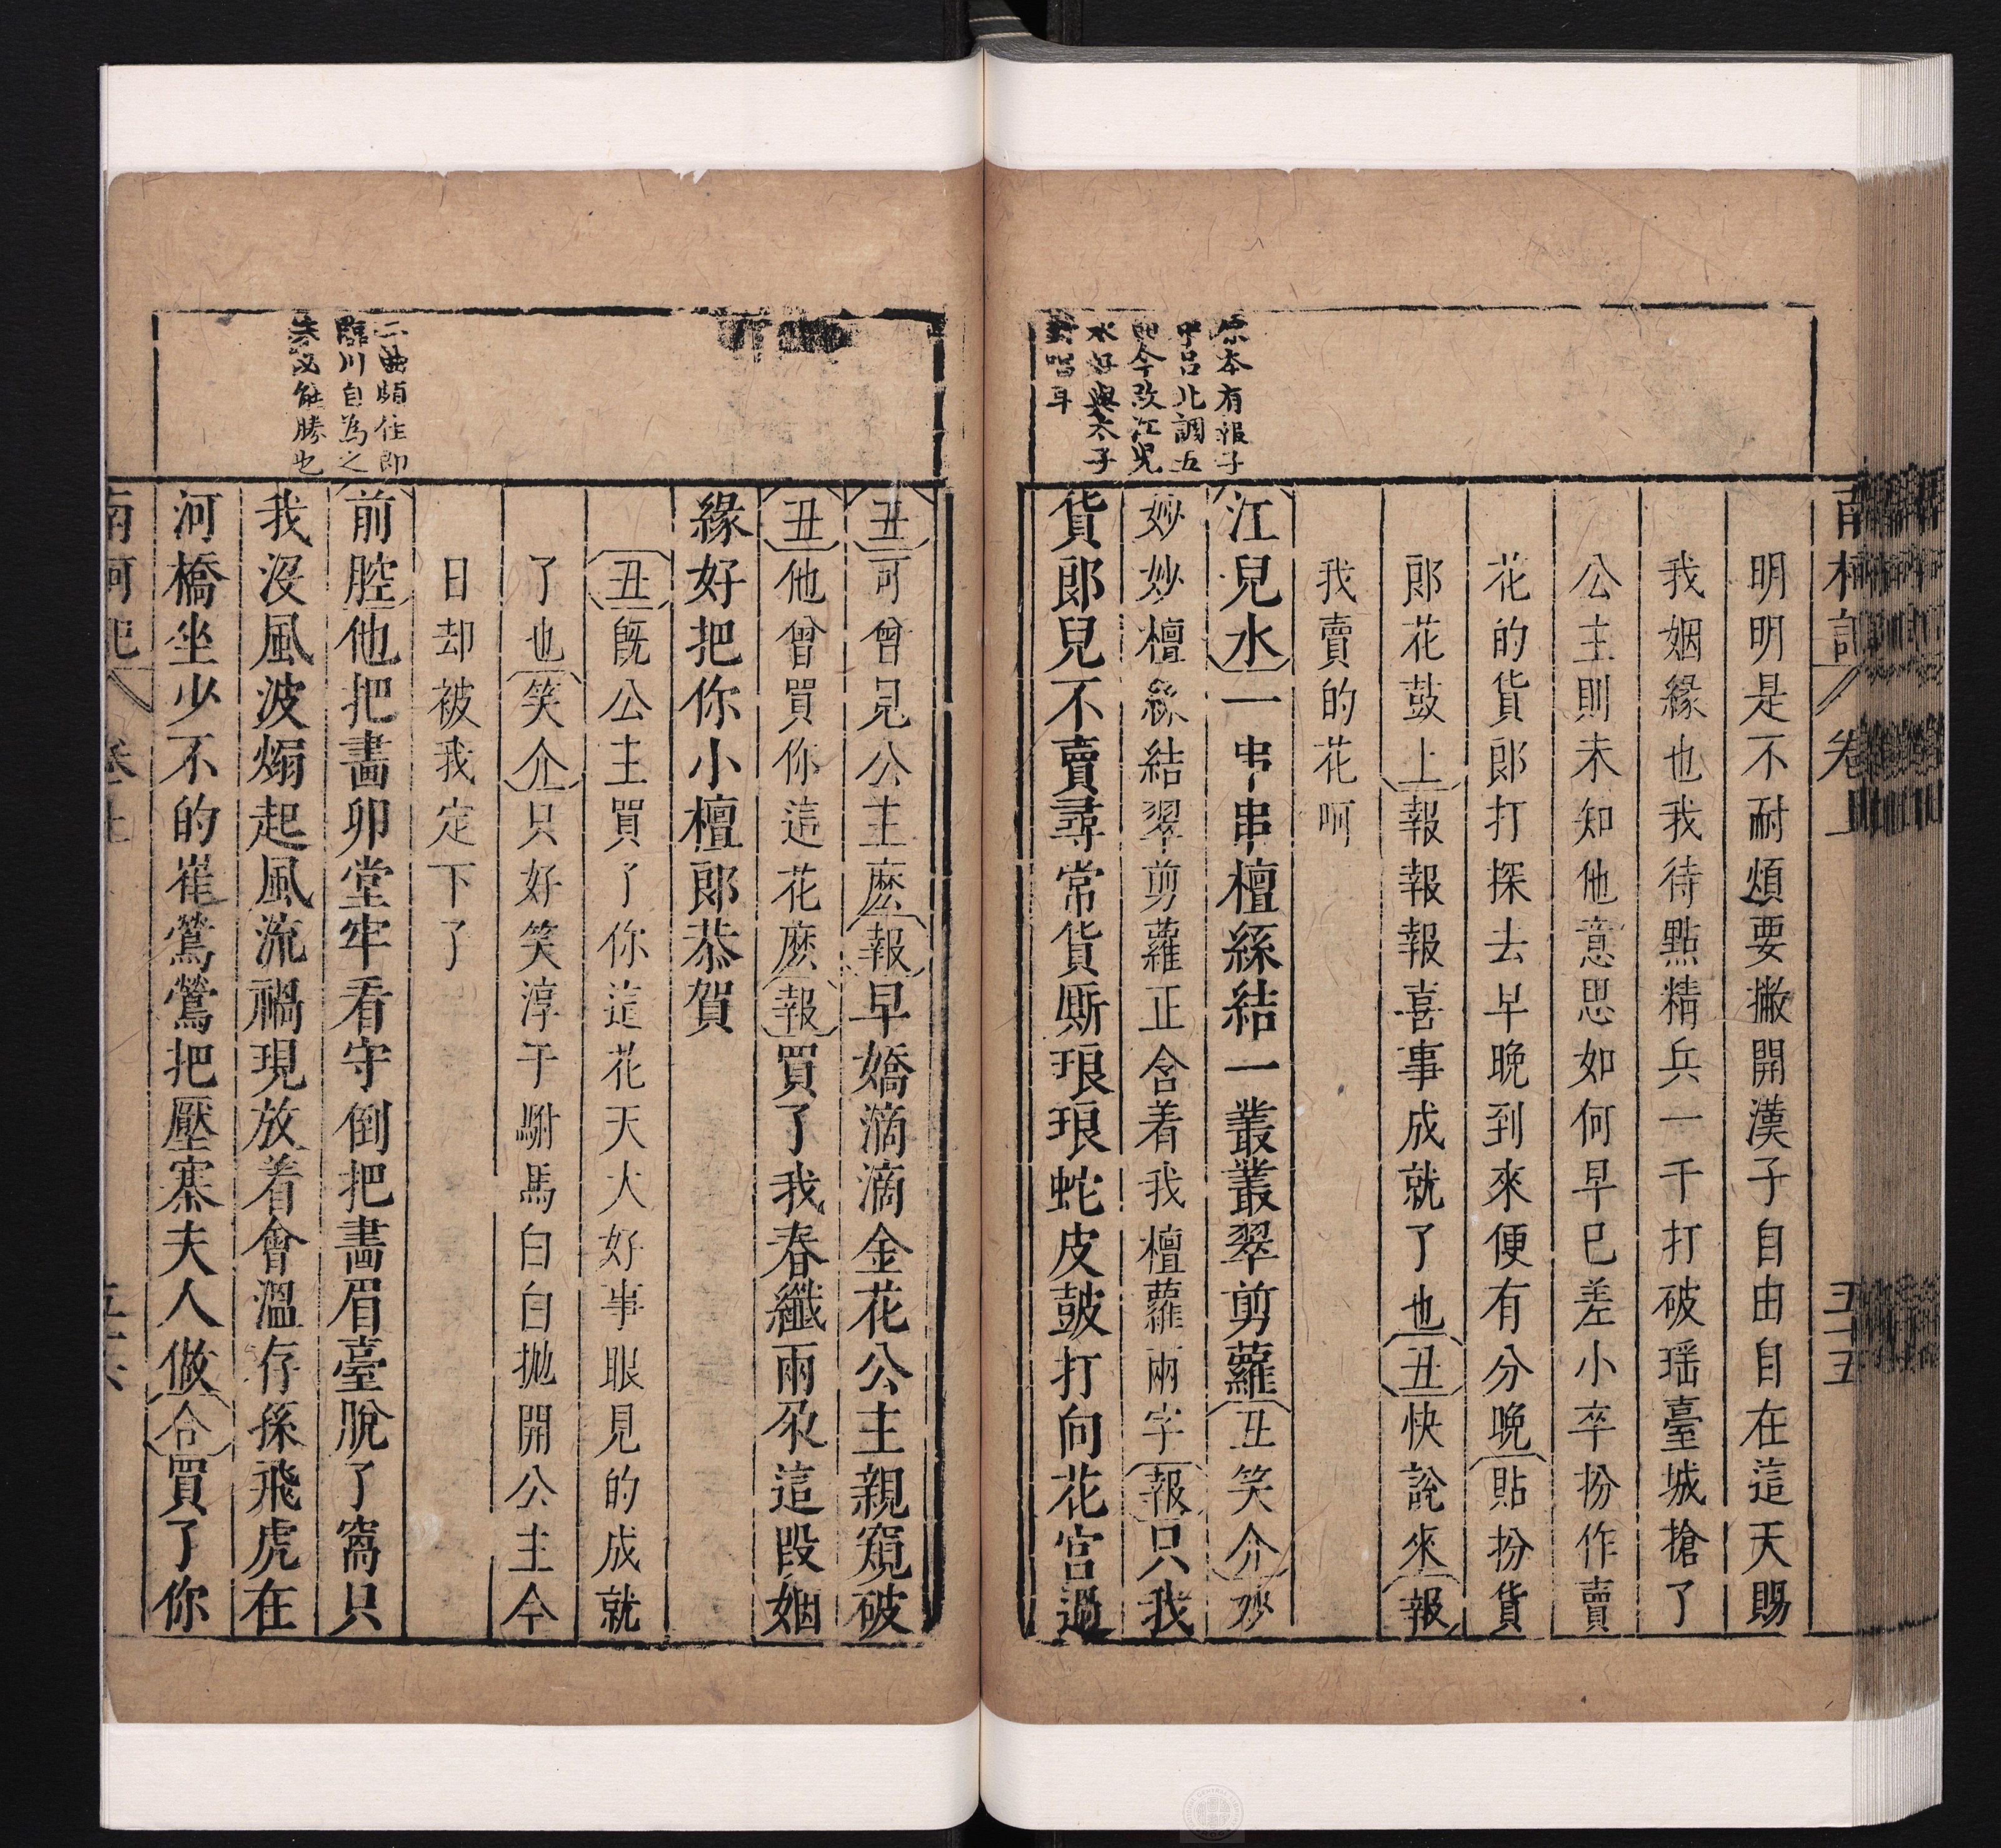 原本有報子
中呂北調五
曲今改江兒
水好與太子
對唱耳
南柯記 卷上 五十五
明明是不耐煩要撇開漢子自由自在這天賜
我姻緣也我待點精兵一千打破瑶臺城搶了
公主則未知他意思如何早已差小卒扮作賣
花的貨郎打探去早晚到來便有分曉〔貼扮貨
郎花鼓上〕報報報喜事成就了也〔丑〕快說來〔報〕
我賣的花啊
〔江兒水〕一丳串檀絲結一叢叢翠剪蘿〔丑笑介〕妙
妙妙檀絲結翠剪蘿正含着我檀蘿兩字〔報〕只我
貨郎兒不賣尋常貨厮琅琅蛇皮皷打向花宮過
〔丑〕可曾見公主麽〔報〕早嬌滴滴金花公主親窺破
〔丑〕他曾買你這花麽〔報〕買了我春纖兩朶這段姻
緣好把你小檀郎恭賀
〔丑〕既公主買了你這花天大好事眼見的成就
了也〔笑介〕只好笑淳于駙馬白白抛開公主今
日却被我定下了
二曲頗佳即
臨川自為之
未必能勝也
〔前腔〕他把畵卯堂牢看守倒把畵眉臺脫了窩只
我没風波煽起風流禍現放着會溫存孫飛虎在
河橋坐少不的崔鶯鶯把壓寨夫人做〔合〕買了你
南柯記 卷上 五十六